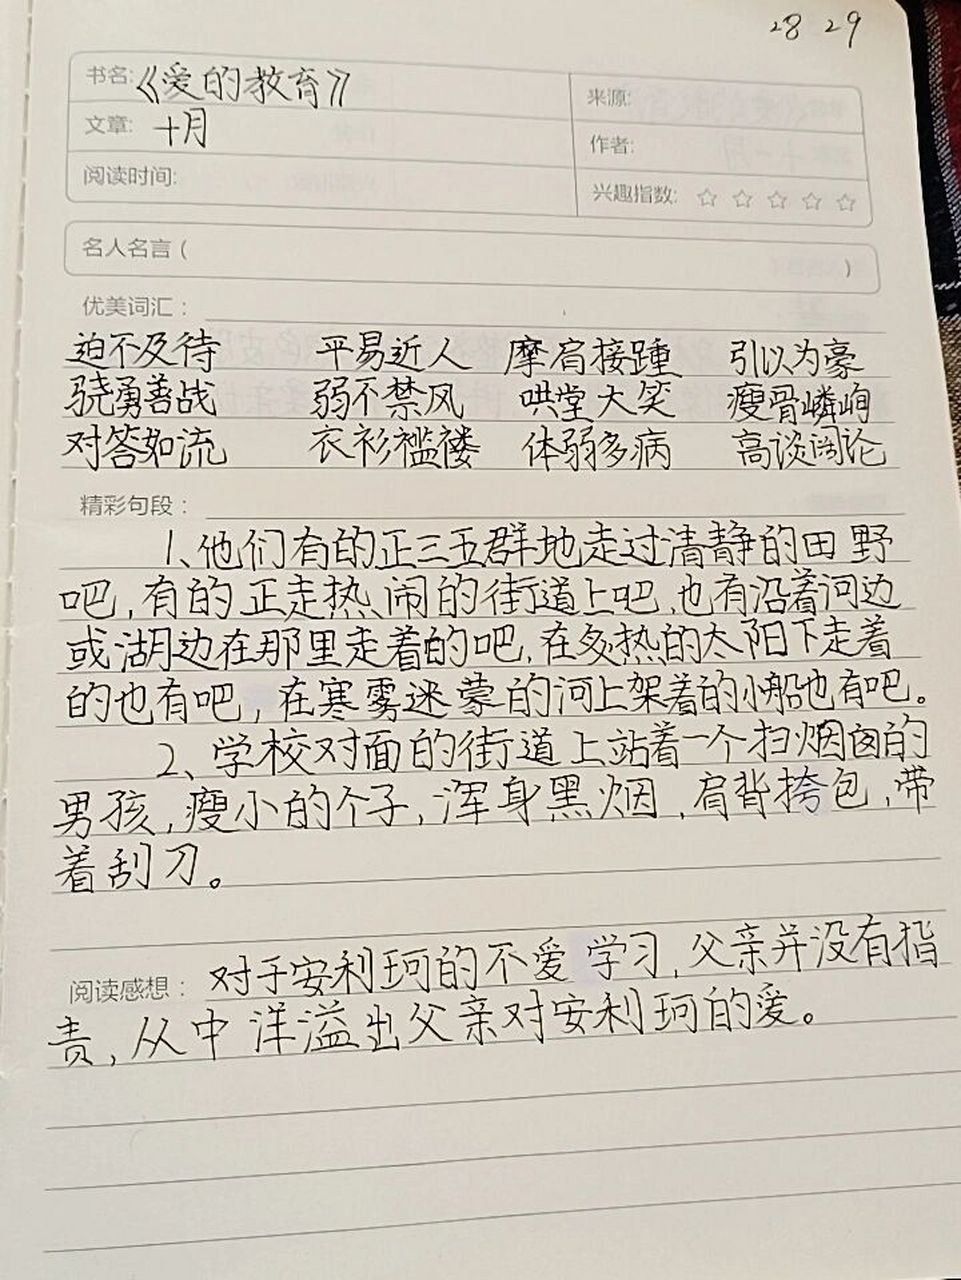 28 29
书名:《爱的教育》
来源:
文章: 十月
作者:
阅读时间:
兴趣指数: ☆ ☆ ☆ ☆ ☆
名人名言 ( )
优美词汇:
迫不及待 平易近人 摩肩接踵 引以为豪
骁勇善战 弱不禁风 哄堂大笑 瘦骨嶙峋
对答如流 衣衫褴褛 体弱多病 高谈阔论
精彩句段:
1、他们有的正三五群地走过清静的田野
吧,有的正走热闹的街道上吧,也有沿着河边
或湖边在那里走着的吧,在炙热的太阳下走着
的也有吧,在寒雾迷蒙的河上架着的小船也有吧。
2、学校对面的街道上站着一个扫烟囱的
男孩,瘦小的个子,浑身黑烟,肩背挎包,带
着刮刀。
阅读感想: 对于安利珂的不爱学习,父亲并没有指
责,从中洋溢出父亲对安利珂的爱。